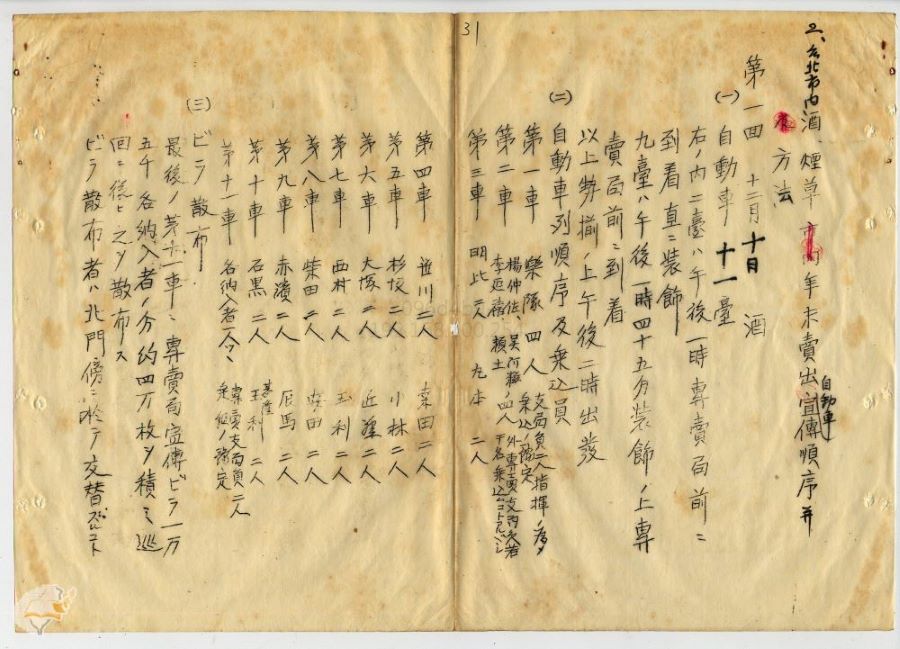 二、台北市内酒、煙草年末賣出自動車宣傳順序并
方法
第一回 十二月十日 酒
(一) 自動車 十一臺
右ノ内二臺ハ午後一時專賣局前ニ
到着直ニ裝飾
九臺ハ午後一時四十五分裝飾ノ上專
賣局前ニ到着
以上勢揃ノ上午後二時出發
(二) 自動車列順序及乘込員
第一車 樂隊 四人 支局員二人指揮ノ為メ乘込ノ豫定
第二車 楊仲佐、吳阿 李延禧 賴土 ノ四人 外專賣支局 者 干名乘込ムコトアルベシ
第三車 明比 二人 九本 二人
第四車 笹川 二人 桑田 二人
第五車 杉坂 二人 小林 二人
第六車 大塚 二人 近藤 二人
第七車 西村 二人 玉利 二人
第八車 柴田 二人 田 二人
第九車 赤濱 二人 辰馬 二人
第十車 石黒 二人 基隆 玉利 二人
第十一車 各納入者一人ツヽ 專賣支局員二人乘組ノ豫定
(三) ビラ散布
最後ノ第十一車ニ專賣局宣傳ビラ一万
五千各納入者ノ分約四万枚ヲ積ミ巡
回ニ從ヒ之ヲ散布ス
ビラ散布者ハ北門傍ニ於テ交替スルコト
31